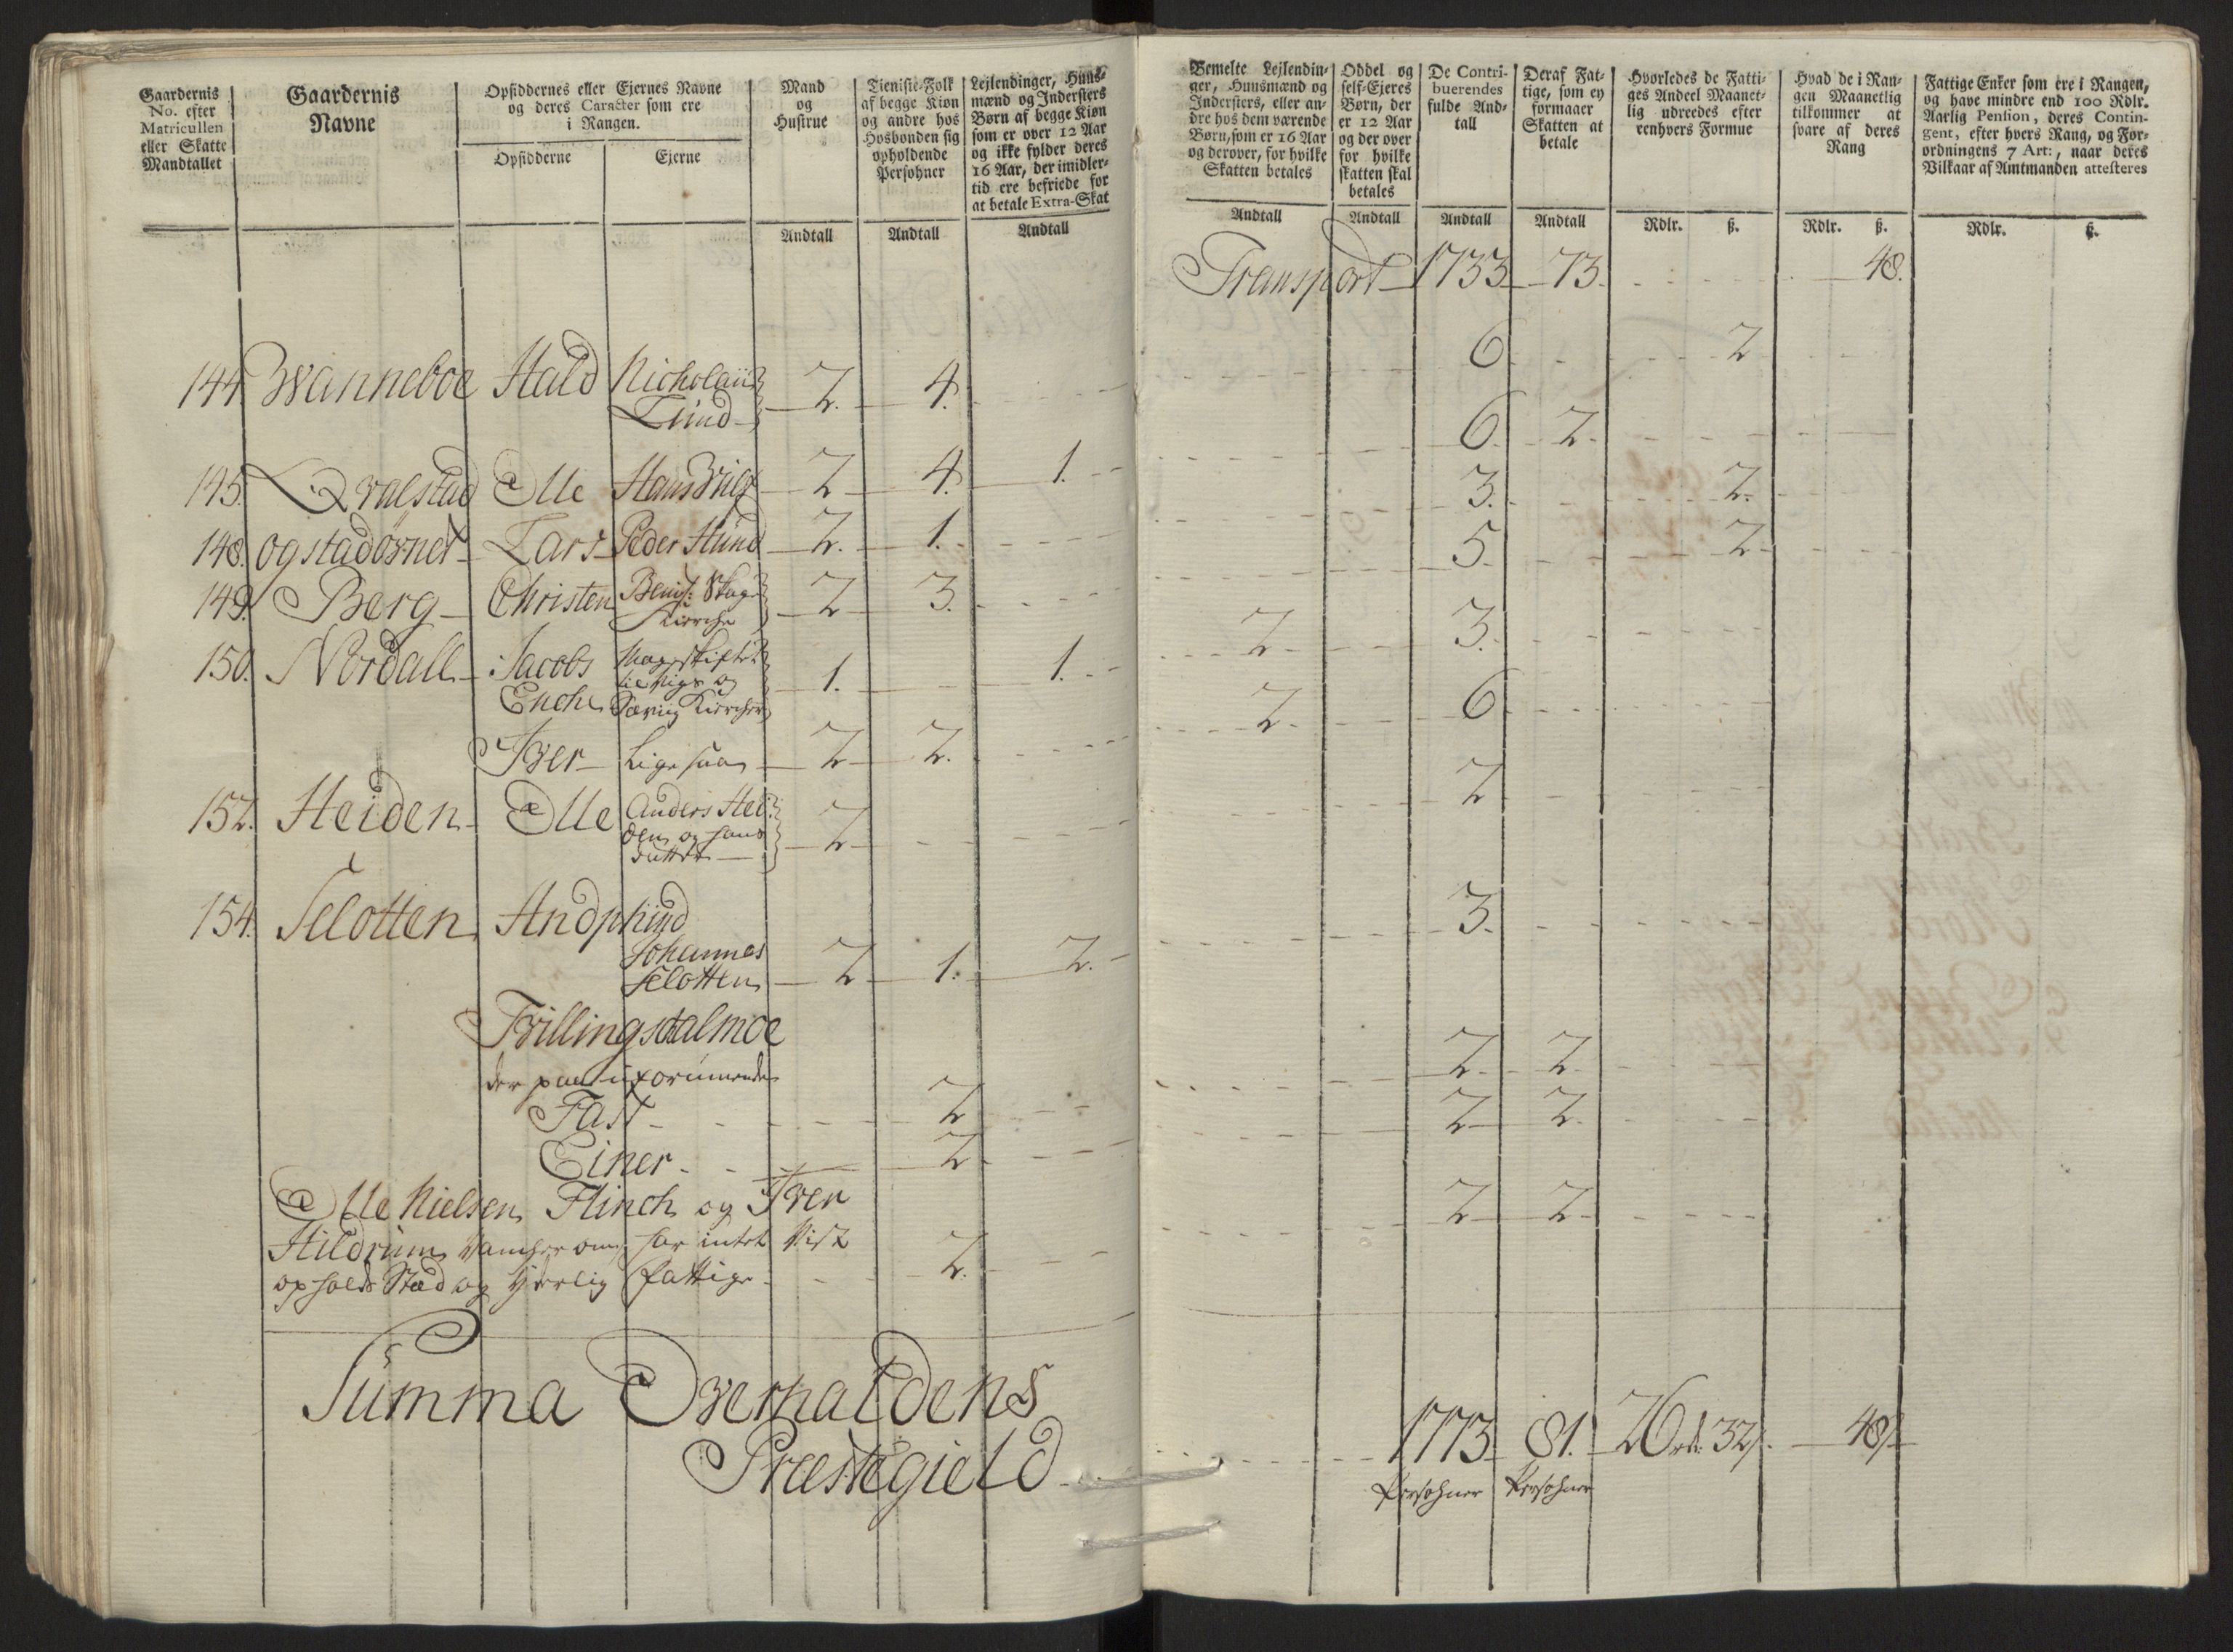 Gaardernis
No. efter
Matricullen
eller Skatte
Mandtallet
Gaardernis
Navne
Opsiddernes eller Ejernes Navne
og deres Caracter som ere
i Rangen.
Opsidderne
Ejerne
Mand
og
Hustrue
Tieniste-Folk
af begge Kiøn
og andre hos
Hosbonden sig
opholdende
Persohner
Lejlendinger, Huus-
mænd og Indersters
Børn af begge Kiøn
som er over 12 Aar
og ikke fylder deres
16 Aar, der imidler-
tid ere befriede for
at betale Extra-Skat
Andtall Andtall Andtall
144. Wanneboe Hald Nicholaii
Lund 2. 4.
145. Qvalstad Olle Hans Brix 2 4. 1.
148. Ogstadørnet Lars Peder Hund 2. 1.
149. Berg Christen
Kirche 2 3.
150. Nordall Jacobs Mageskiftet
Enche og
Særvig Kircher 1. 1.
Iver Lige saa 2 2.
152. Heiden Olle Anders Hei-
den og hans
dutter 2
154. Selotten Andphind
Johannes
Selotten 2 1. 2.
Trillingsdalmoe
der paa
Fast 2
Einer 2
Olle Nielsen Flinch og Iver
Hildrum Vancher om, har intet vist
opholds Stæd og fattige 2.
Summa Overhaldens
Præstegield
Bemelte Lejlendin-
ger, Huusmænd og
Indersters, eller an-
dre hos dem værende
Børn, som er 16 Aar
og derover, for hvilke
Skatten betales
Oddel og
self-Ejeres
Børn, der
er 12 Aar
og der over
for hvilke
skatten skal
betales
De Contri-
buerendes
fulde And-
tall
Deraf Fat-
tige, som ey
formaaer
Skatten at
betale
Hvorledes de Fatti-
ges Andeel Maanet-
lig udreedes efter
eenhvers Formue
Hvad de i Ran-
gen Maanetlig
tilkommer at
svare af deres
Rang
Fattige Enker som ere i Rangen,
og have mindre end 100 Rdlr.
Aarlig Pention, deres Contin-
gent, efter hvers Rang, og For-
ordningens 7 Art:, naar deres
Vilkaar af Amtmanden attesteres
Andtall Andtall Andtall Andtall Rdlr. ß. Rdlr. ß. Rdlr. ß.
Transport 1733 73. 48.
6. 2
6. 2.
3. 2.
5. 2
2 3.
2. 6
2
3.
2. 2.
2 2.
2 2.
1773 81. 26 rd. 32 ß. 48 ß
Persohner Persohner